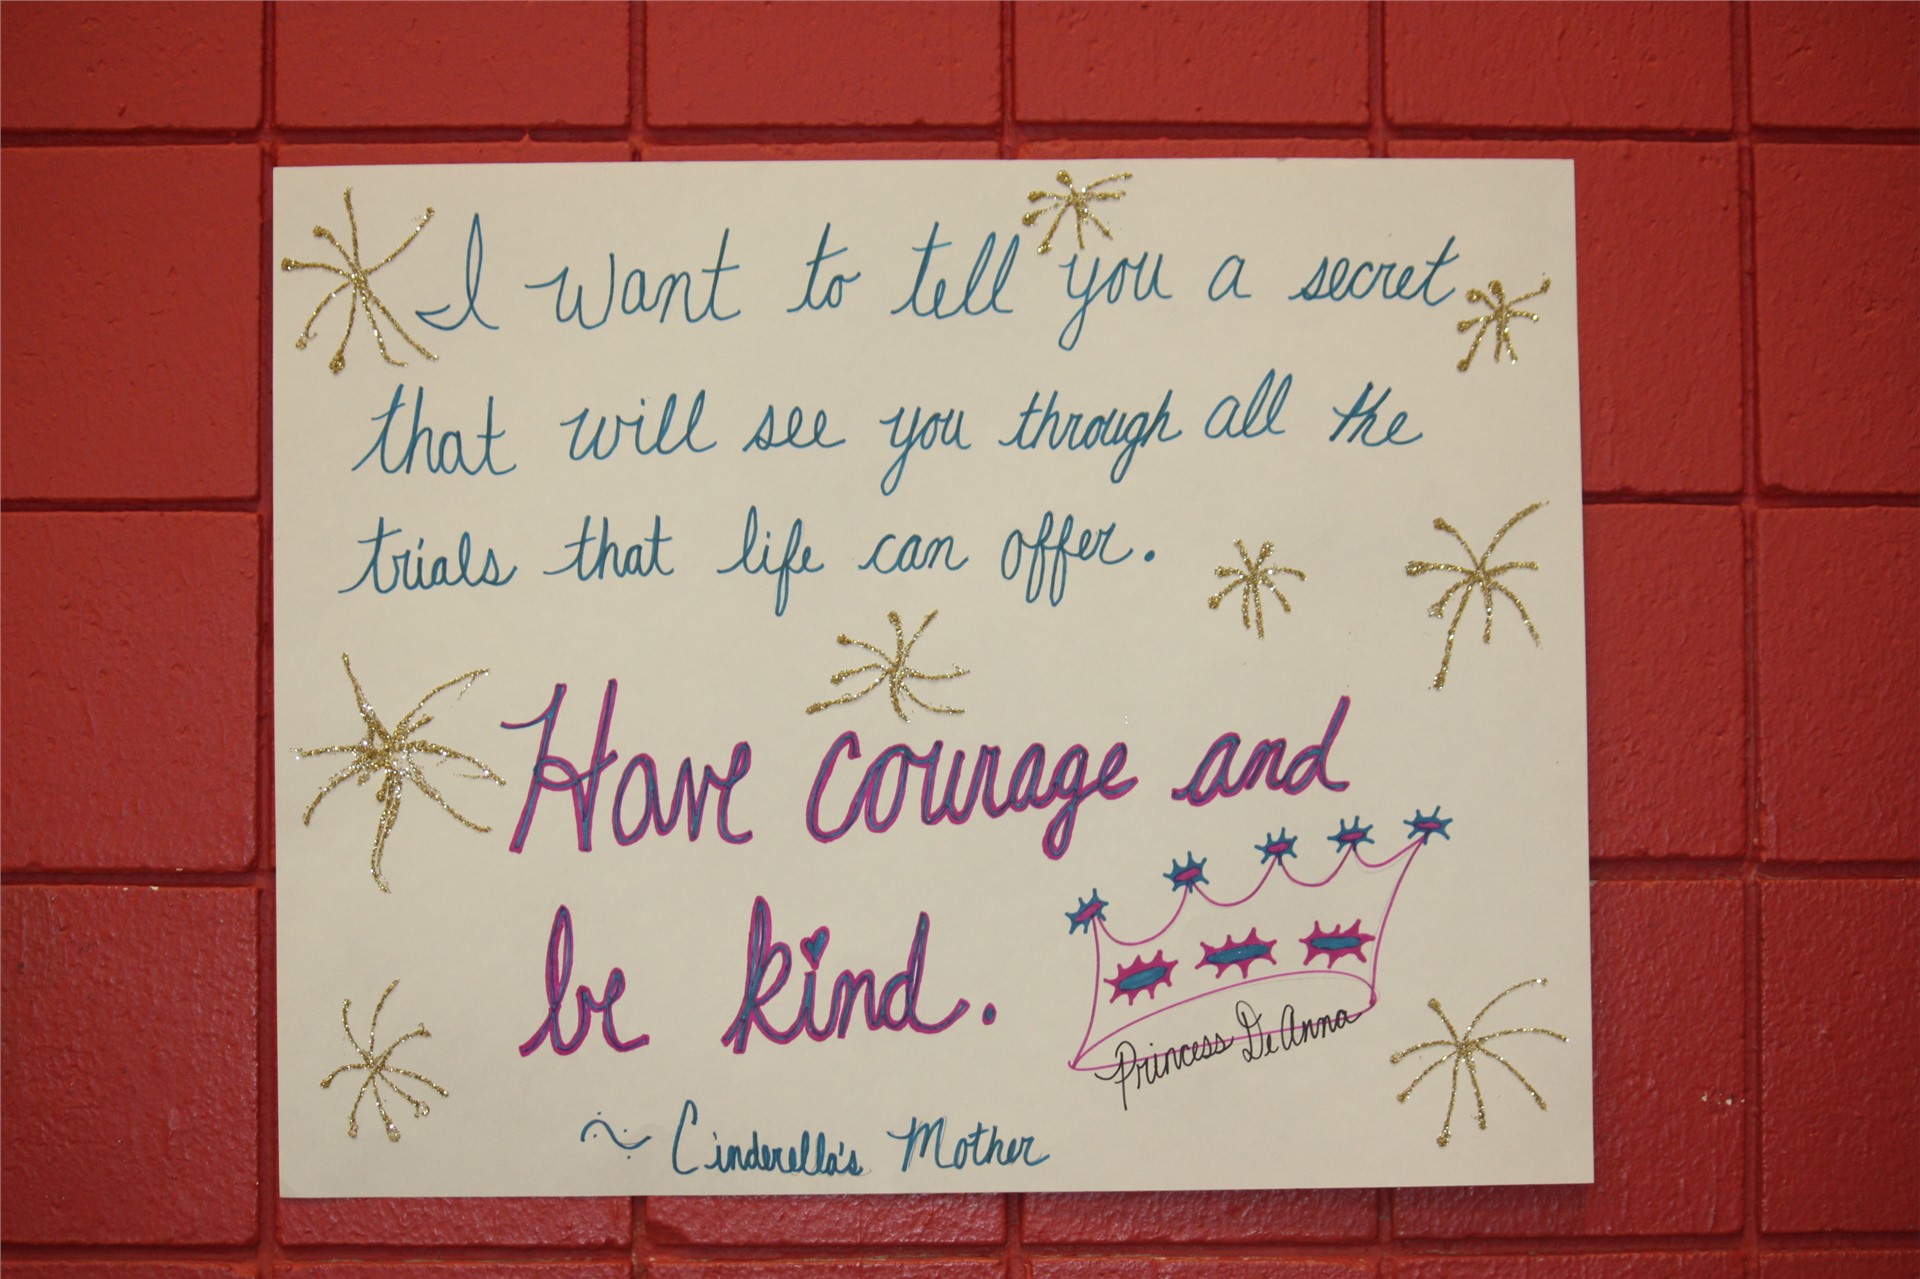 I want to tell you a secret
that will see you through all the
trials that life can offer.
Have courage and
be kind.
Princess DeAnna
~ Cinderella's Mother